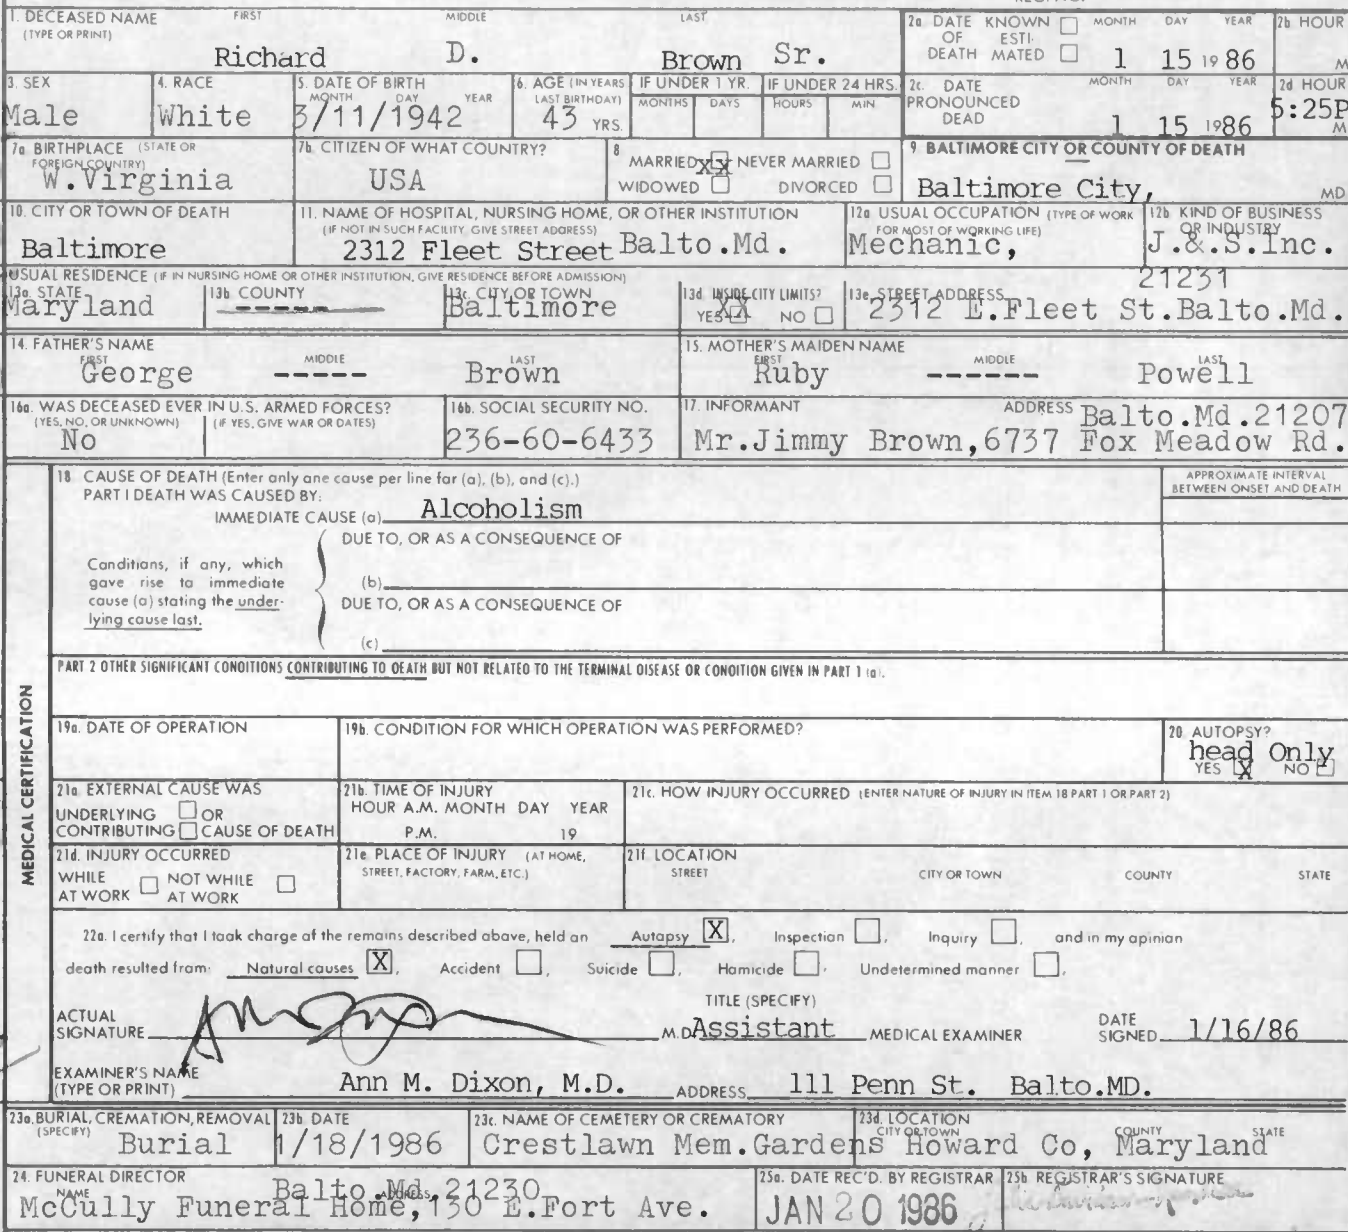 1. DECEASED NAME (TYPE OR PRINT) FIRST MIDDLE LAST
Richard D. Brown Sr.
2a DATE OF DEATH KNOWN ☐ ESTI-MATED ☐ MONTH DAY YEAR
1 15 1986
2b HOUR M
3. SEX
Male
4. RACE
White
5. DATE OF BIRTH MONTH DAY YEAR
3/11/1942
6. AGE (IN YEARS LAST BIRTHDAY)
43 YRS.
IF UNDER 1 YR. MONTHS DAYS
IF UNDER 24 HRS. HOURS MIN.
2c. DATE PRONOUNCED DEAD MONTH DAY YEAR
1 15 1986
2d HOUR
5:25P M
7a BIRTHPLACE (STATE OR FOREIGN COUNTRY)
W.Virginia
7b. CITIZEN OF WHAT COUNTRY?
USA
8 MARRIED XX NEVER MARRIED ☐
WIDOWED ☐ DIVORCED ☐
9 BALTIMORE CITY OR COUNTY OF DEATH
Baltimore City, MD
10. CITY OR TOWN OF DEATH
Baltimore
11. NAME OF HOSPITAL, NURSING HOME, OR OTHER INSTITUTION
(IF NOT IN SUCH FACILITY, GIVE STREET ADDRESS)
2312 Fleet Street Balto.Md.
12a USUAL OCCUPATION (TYPE OF WORK FOR MOST OF WORKING LIFE)
Mechanic,
12b KIND OF BUSINESS OR INDUSTRY
J.&.S.Inc.
USUAL RESIDENCE (IF IN NURSING HOME OR OTHER INSTITUTION, GIVE RESIDENCE BEFORE ADMISSION)
13a. STATE
Maryland
13b COUNTY
-----
13c. CITY OR TOWN
Baltimore
13d. INSIDE CITY LIMITS?
YES XX NO ☐
13e. STREET ADDRESS
21231
2312 E.Fleet St.Balto.Md.
14. FATHER'S NAME FIRST MIDDLE LAST
George ----- Brown
15. MOTHER'S MAIDEN NAME FIRST MIDDLE LAST
Ruby ------ Powell
16a. WAS DECEASED EVER IN U.S. ARMED FORCES?
(YES, NO, OR UNKNOWN) (IF YES, GIVE WAR OR DATES)
No
16b. SOCIAL SECURITY NO.
236-60-6433
17. INFORMANT ADDRESS
Balto.Md.21207
Mr.Jimmy Brown,6737 Fox Meadow Rd.
MEDICAL CERTIFICATION
18 CAUSE OF DEATH (Enter only one cause per line for (a), (b), and (c).)
APPROXIMATE INTERVAL BETWEEN ONSET AND DEATH
PART I DEATH WAS CAUSED BY:
IMMEDIATE CAUSE (a) Alcoholism
DUE TO, OR AS A CONSEQUENCE OF
Conditions, if any, which gave rise to immediate cause (a) stating the under-lying cause last.
(b)
DUE TO, OR AS A CONSEQUENCE OF
(c)
PART 2 OTHER SIGNIFICANT CONDITIONS CONTRIBUTING TO DEATH BUT NOT RELATED TO THE TERMINAL DISEASE OR CONDITION GIVEN IN PART 1 (a).
19a. DATE OF OPERATION
19b. CONDITION FOR WHICH OPERATION WAS PERFORMED?
20. AUTOPSY?
head Only
YES X NO ☐
21a EXTERNAL CAUSE WAS
UNDERLYING ☐ OR
CONTRIBUTING ☐ CAUSE OF DEATH
21b. TIME OF INJURY
HOUR A.M. MONTH DAY YEAR
P.M. 19
21c. HOW INJURY OCCURRED (ENTER NATURE OF INJURY IN ITEM 18 PART 1 OR PART 2)
21d. INJURY OCCURRED
WHILE AT WORK ☐ NOT WHILE AT WORK ☐
21e PLACE OF INJURY (AT HOME, STREET, FACTORY, FARM, ETC.)
21f. LOCATION
STREET CITY OR TOWN COUNTY STATE
22a. I certify that I took charge of the remains described above, held an Autopsy X, Inspection ☐, Inquiry ☐, and in my opinion
death resulted from: Natural causes X, Accident ☐, Suicide ☐, Homicide ☐, Undetermined manner ☐,
ACTUAL SIGNATURE M.D. TITLE (SPECIFY) Assistant MEDICAL EXAMINER DATE SIGNED 1/16/86
EXAMINER'S NAME (TYPE OR PRINT) Ann M. Dixon, M.D. ADDRESS 111 Penn St. Balto.MD.
23a. BURIAL, CREMATION, REMOVAL (SPECIFY)
Burial
23b DATE
1/18/1986
23c. NAME OF CEMETERY OR CREMATORY
Crestlawn Mem.Gardens
23d. LOCATION CITY OR TOWN COUNTY STATE
Howard Co, Maryland
24. FUNERAL DIRECTOR NAME ADDRESS
Balto.Md.21230
McCully Funeral Home,130 E.Fort Ave.
25a. DATE REC'D. BY REGISTRAR
JAN 20 1986
25b REGISTRAR'S SIGNATURE